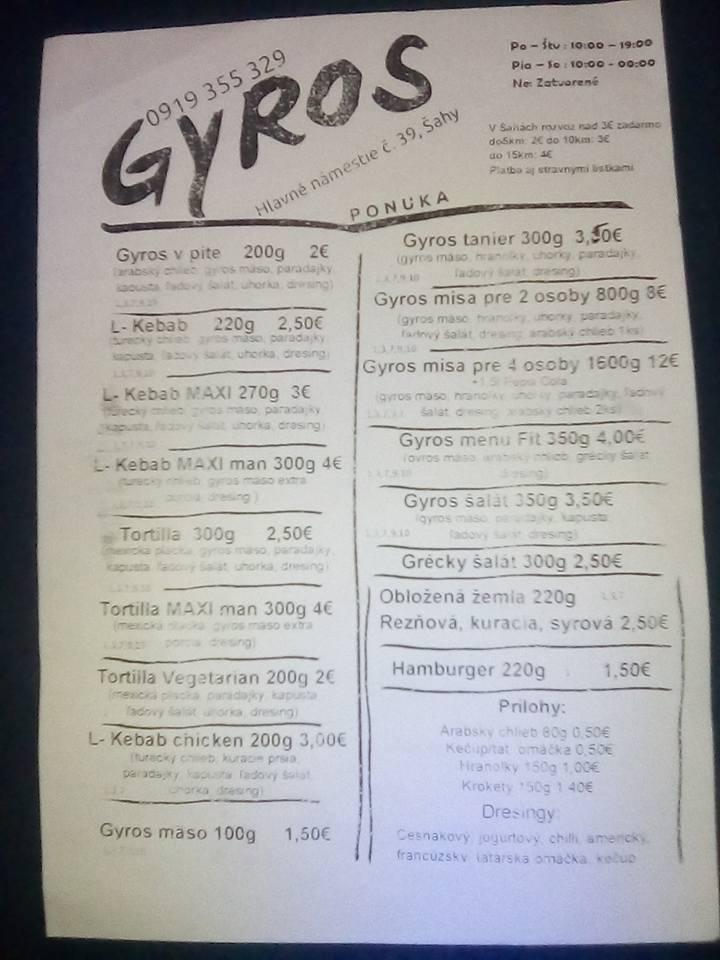 0919 355 329
GYROS
Hlavné námestie č. 39, Šahy
PONUKA
Po - Štv : 10:00 - 19:00
Pia - So : 10:00 - 00:00
Ne: Zatvorené
V Šahách rozvoz nad 3€ zadarmo
do5km: 2€ do 10km: 3€
do 15km: 4€
Platba aj stravnými lístkami
Gyros v pite 200g 2€
(arabský chlieb, gyros mäso, paradajky,
kapusta, ľadový šalát, uhorka, dresing)
L- Kebab 220g 2,50€
(turecký chlieb, gyros mäso, paradajky,
kapusta, ľadový šalát, uhorka, dresing)
L- Kebab MAXI 270g 3€
(turecký chlieb, gyros mäso, paradajky,
kapusta, ľadový šalát, uhorka, dresing)
L- Kebab MAXI man 300g 4€
(turecký chlieb, gyros mäso extra
porcia, dresing )
Tortilla 300g 2,50€
(mexická placka, gyros mäso, paradajky,
kapusta, ľadový šalát, uhorka, dresing)
Tortilla MAXI man 300g 4€
(mexická placka, gyros mäso extra
porcia, dresing)
Tortilla Vegetarian 200g 2€
(mexická placka, paradajky, kapusta,
ľadový šalát, uhorka, dresing)
L- Kebab chicken 200g 3,00€
(turecký chlieb, kuracie prsia,
paradajky, kapusta, ľadový šalát,
uhorka, dresing)
Gyros mäso 100g 1,50€
Gyros tanier 300g 3,50€
(gyros mäso, hranolky, uhorky, paradajky,
ľadový šalát, dresing)
Gyros misa pre 2 osoby 800g 8€
(gyros mäso, hranolky, uhorky, paradajky,
ľadový šalát, dresing, arabský chlieb 1ks)
Gyros misa pre 4 osoby 1600g 12€
+1,5l Pepsi Cola
(gyros mäso, hranolky, uhorky, paradajky, ľadový
šalát, dresing, arabský chlieb 2ks)
Gyros menu Fit 350g 4,00€
(gyros mäso, arabský chlieb, grécky šalát,
dresing)
Gyros šalát 350g 3,50€
(gyros mäso, paradajky, kapusta,
ľadový šalát, dresing)
Grécky šalát 300g 2,50€
Obložená žemľa 220g
Rezňová, kuracia, syrová 2,50€
Hamburger 220g 1,50€
Prílohy:
Arabský chlieb 80g 0,50€
Kečup/tat. omáčka 0,50€
Hranolky 150g 1,00€
Krokety 150g 1,40€
Dresingy
Cesnakový, jogurtový, chilli, americký,
francúzsky, tatarská omáčka, kečup